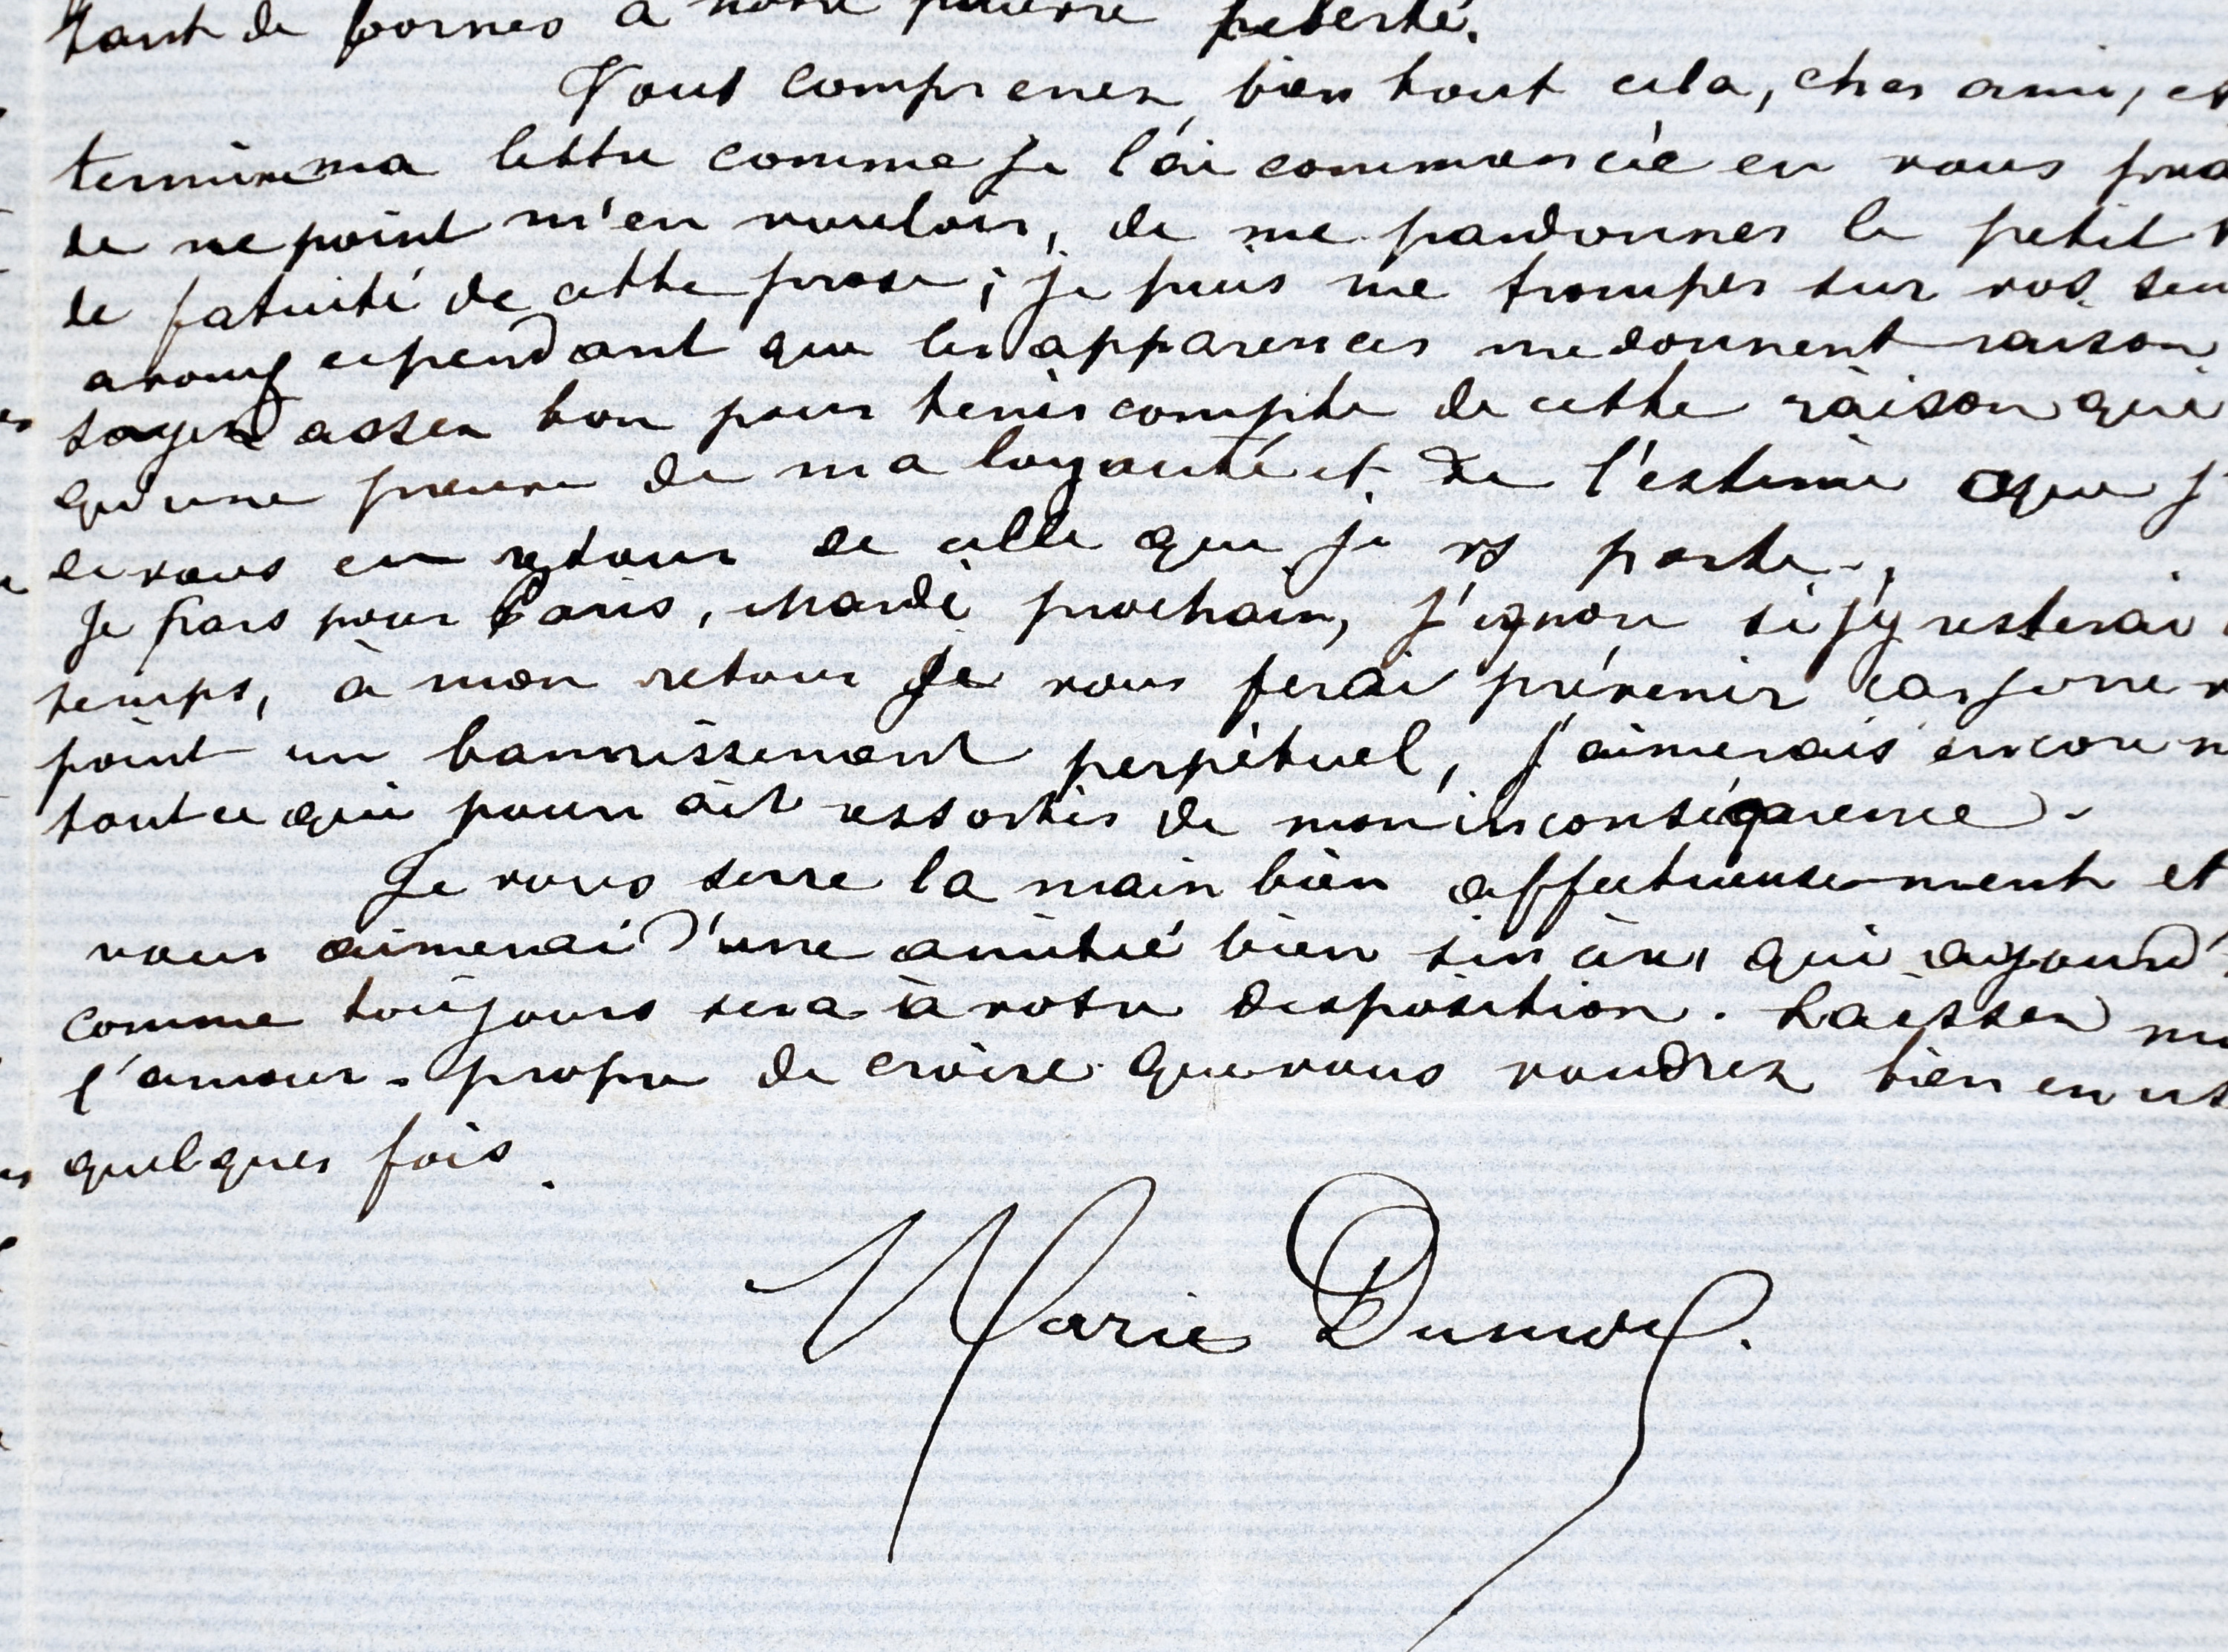 tant de bornes à notre pauvre liberté.
Vous comprenez bien tout cela, cher ami, et
termine ma lettre comme je l'ai commencée en vous pria
de ne point m'en vouloir, de me pardonner le petit
de fatuité de cette prose ; je puis me tromper sur vos sen
avouez cependant que les apparences me donnent raison
soyez assez bon pour tenir compte de cette raison qui
qu'une preuve de ma loyauté et de l'estime que j'
de vous en retour de celle que je vs porte.
Je pars pour Paris, Mardi prochain, j'ignore si j'y resterai
temps, à mon retour je vous ferai prévenir car je ne v
point un bannissement perpétuel, j'aimerais encore m
tout ce qui pourrait ressortir de mon inconséquence.
Je vous serre la main bien affectueusement et
vous aimerai d'une amitié bien sincère, qui aujourd'
comme toujours sera à votre disposition. Laissez moi
l'amour-propre de croire que vous voudrez bien en us
quelques fois.
Marie